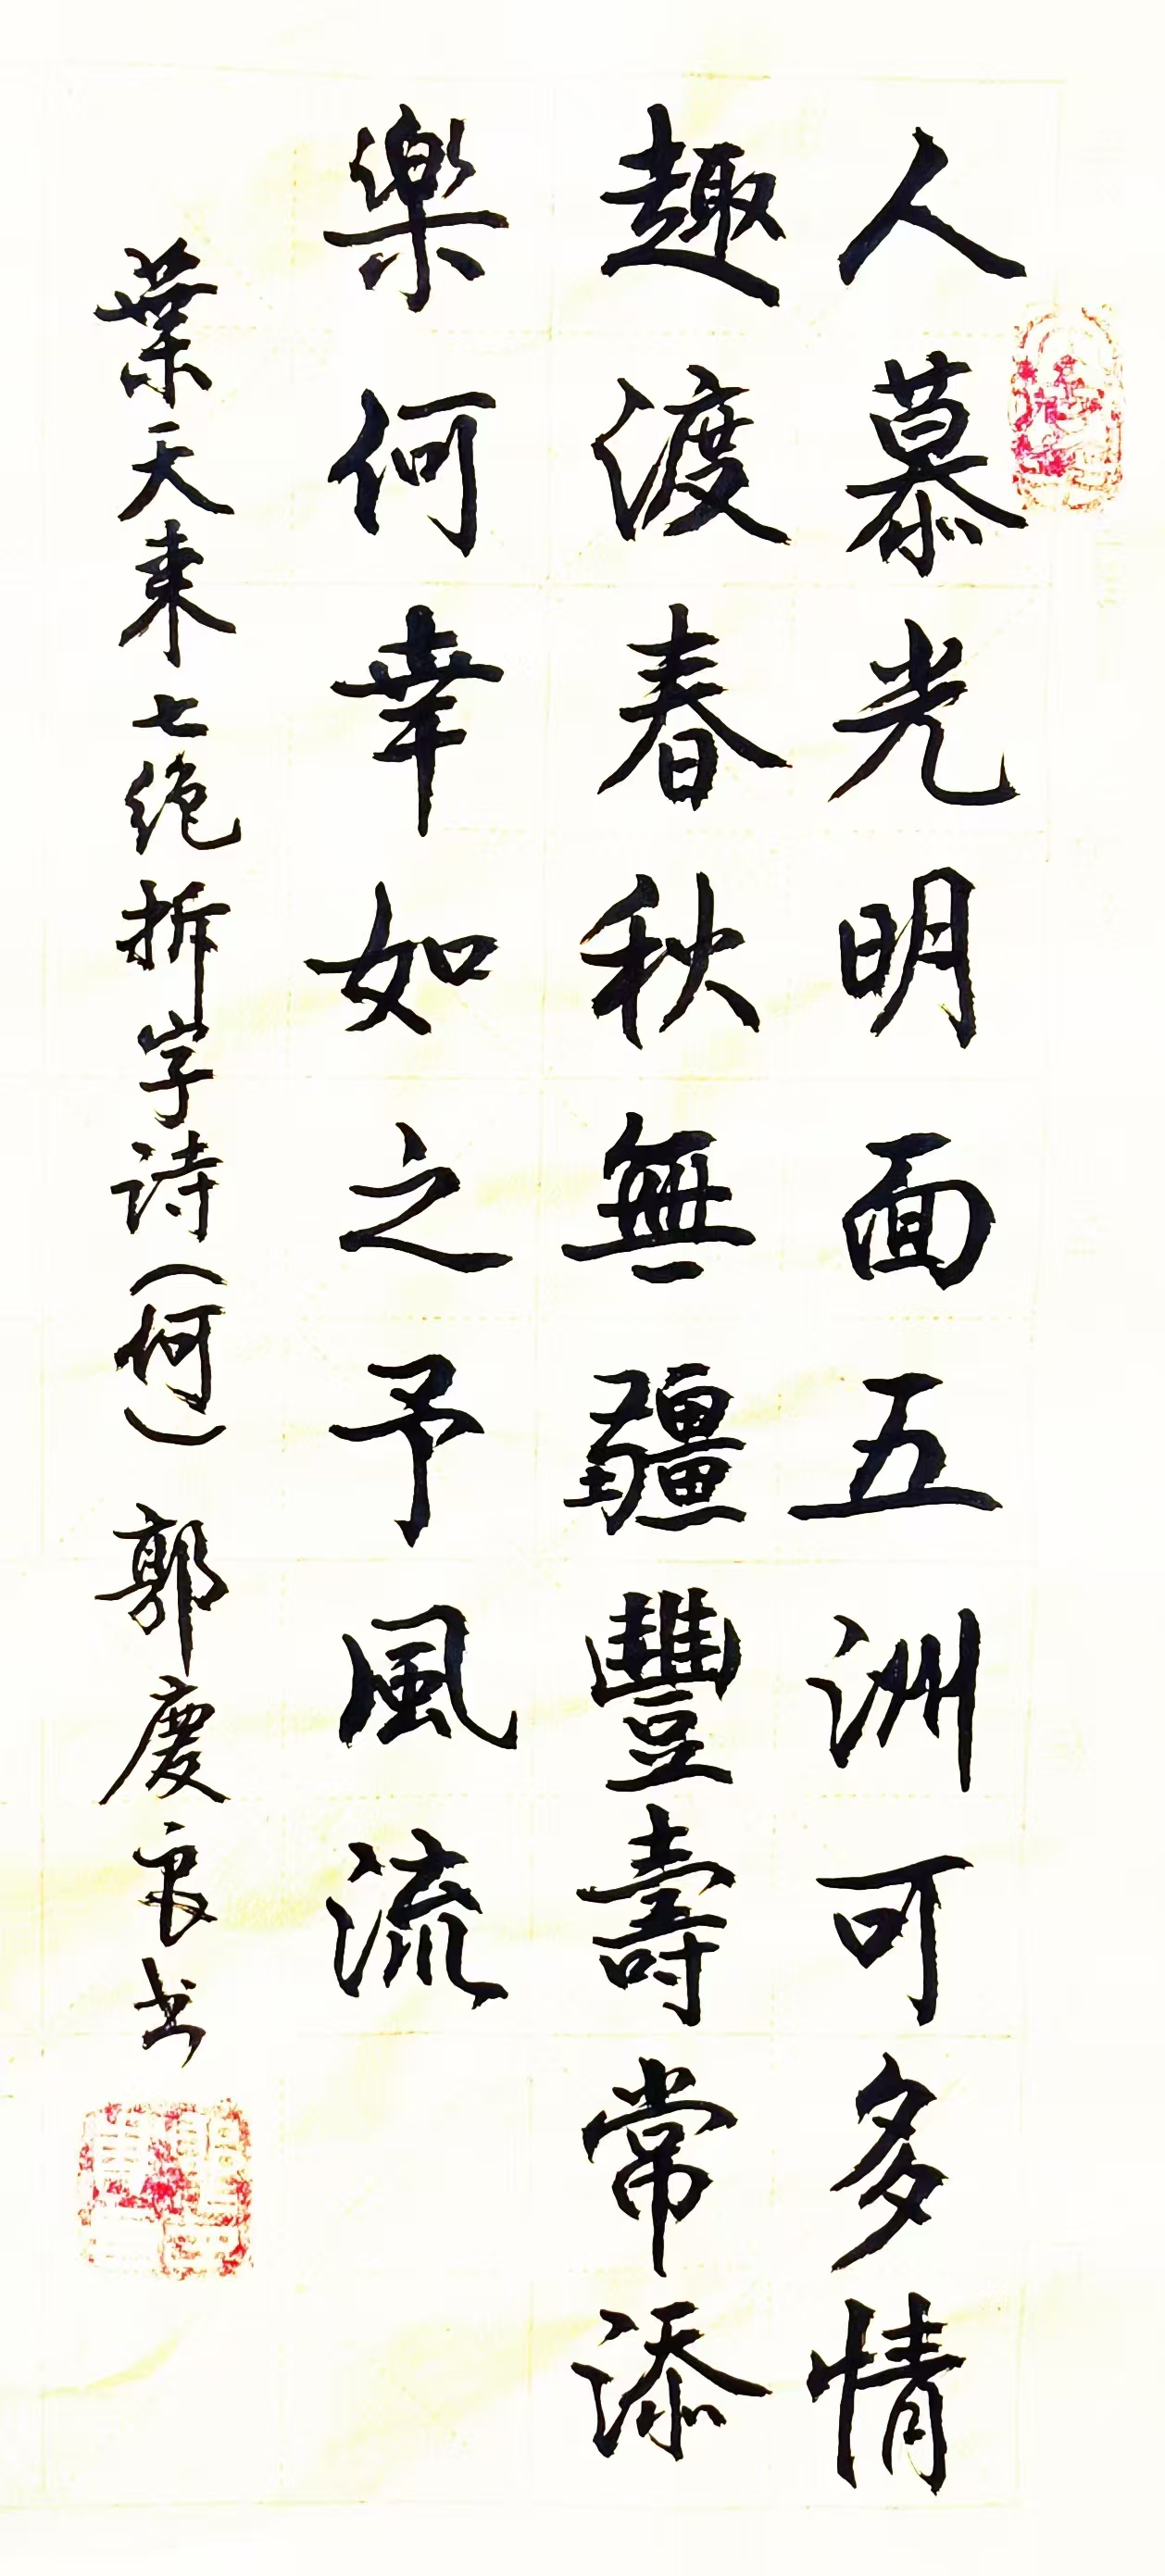 人慕光明面五洲可多情
趣渡春秋無疆豐壽常添
樂何幸如之予風流
葉天来七绝拆字诗(何)郭慶良书